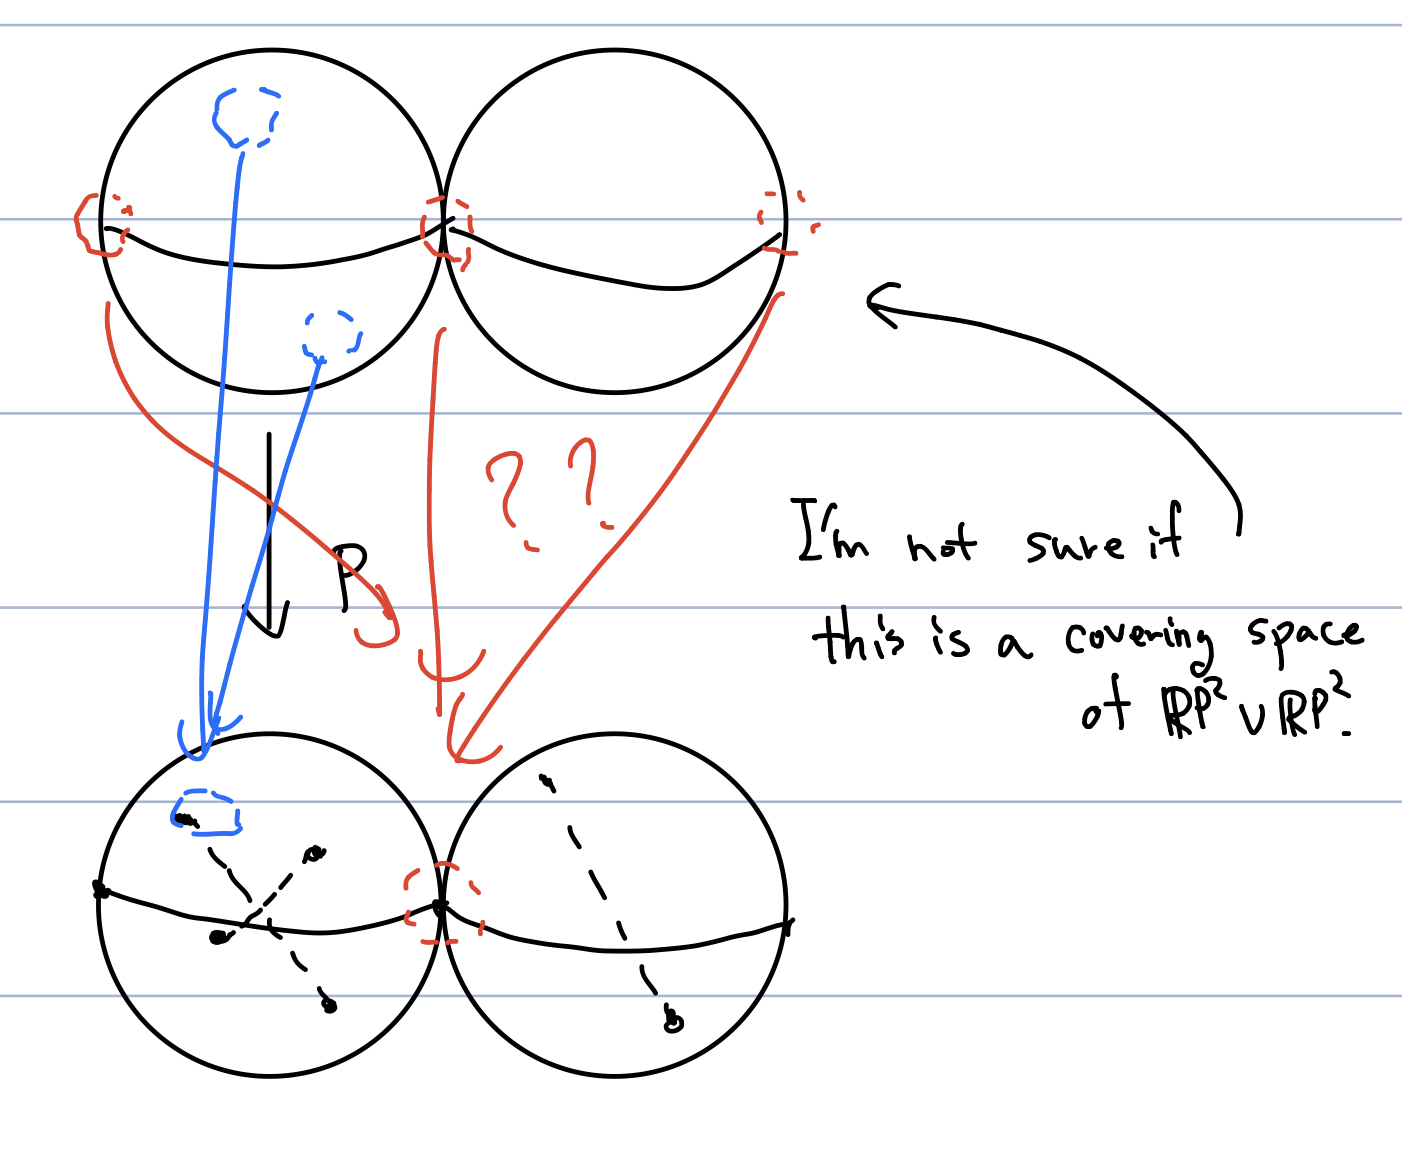 ? ?
P
I'm not sure if
this is a covering space
of RP² ∨ RP².